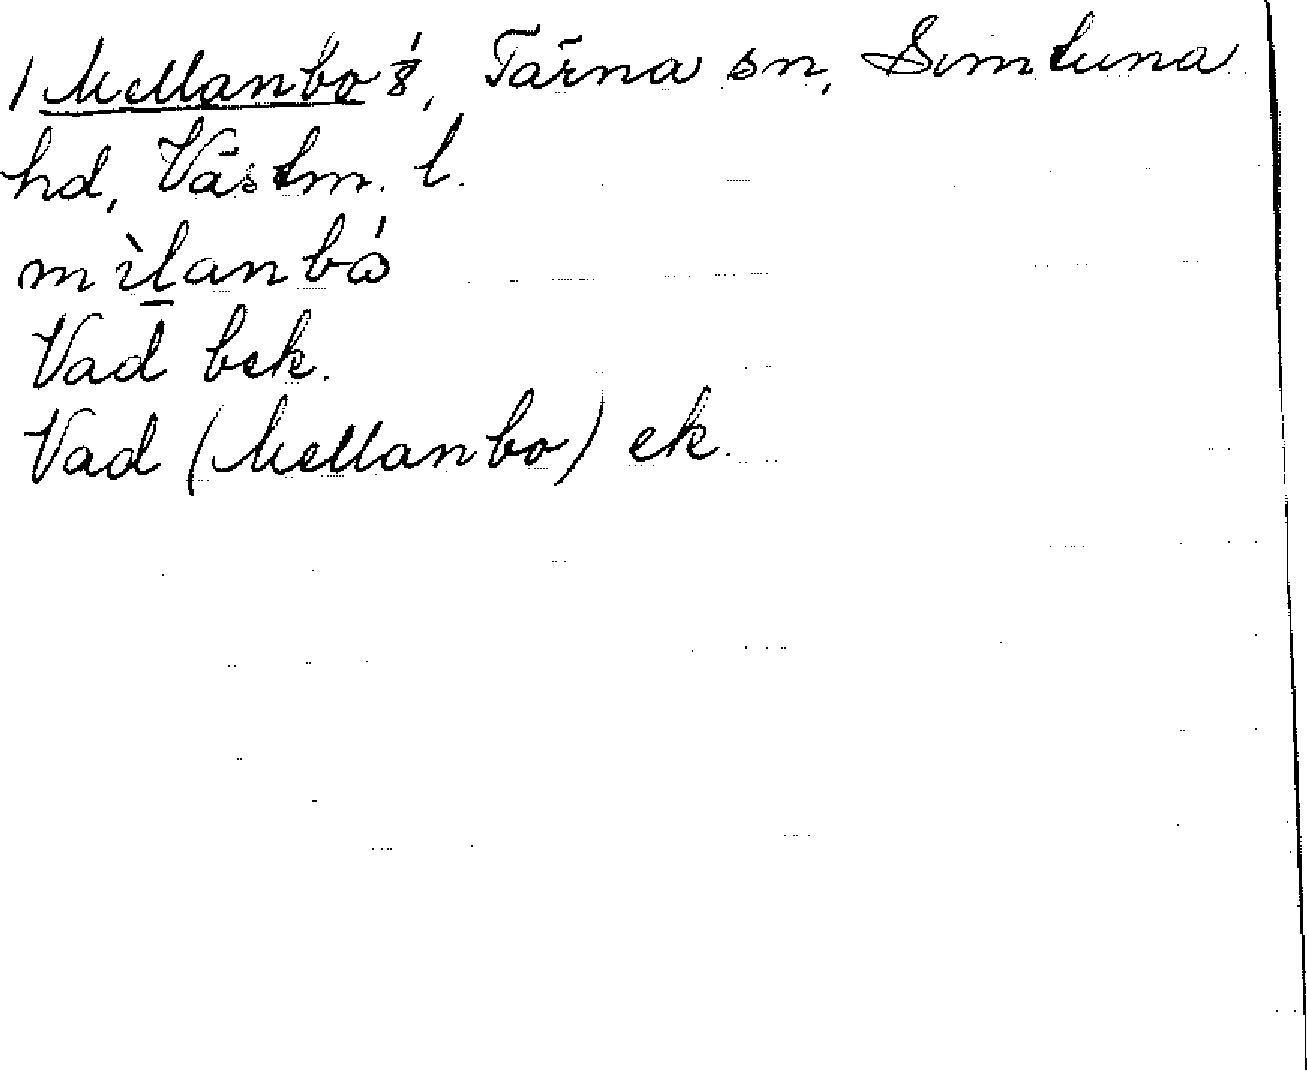 1 Mellanbo ⅛, Tärna sn, Simtuna
hd, Västm. l.
mìlanbó
Vad bek.
Vad (Mellanbo) ek.